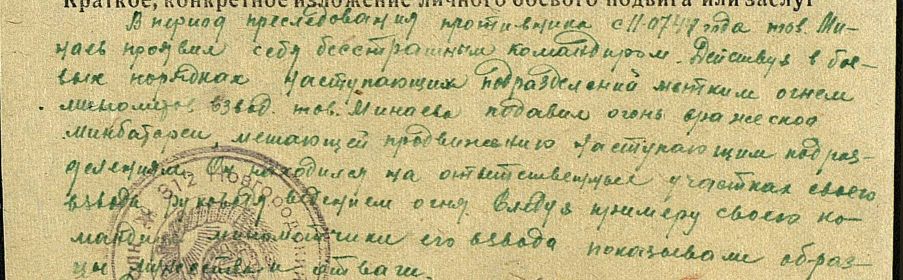 Краткое, конкретное изложение личного боевого подвига или заслуг
В период преследования противника с 11.07.44 года тов. Ми-
наев проявил себя бесстрашным командиром. Действуя в бое-
вых порядках наступающих подразделений метким огнем
минометов взвод тов. Минаева подавил огонь вражеской
минбатареи, мешающей продвижению наступающим подраз-
делениям. Он находился на ответственных участках своего
взвода руководя ведением огня. Следуя примеру своего ко-
мандира минометчики его взвода показывали образ-
цы мужества и отваги.
912